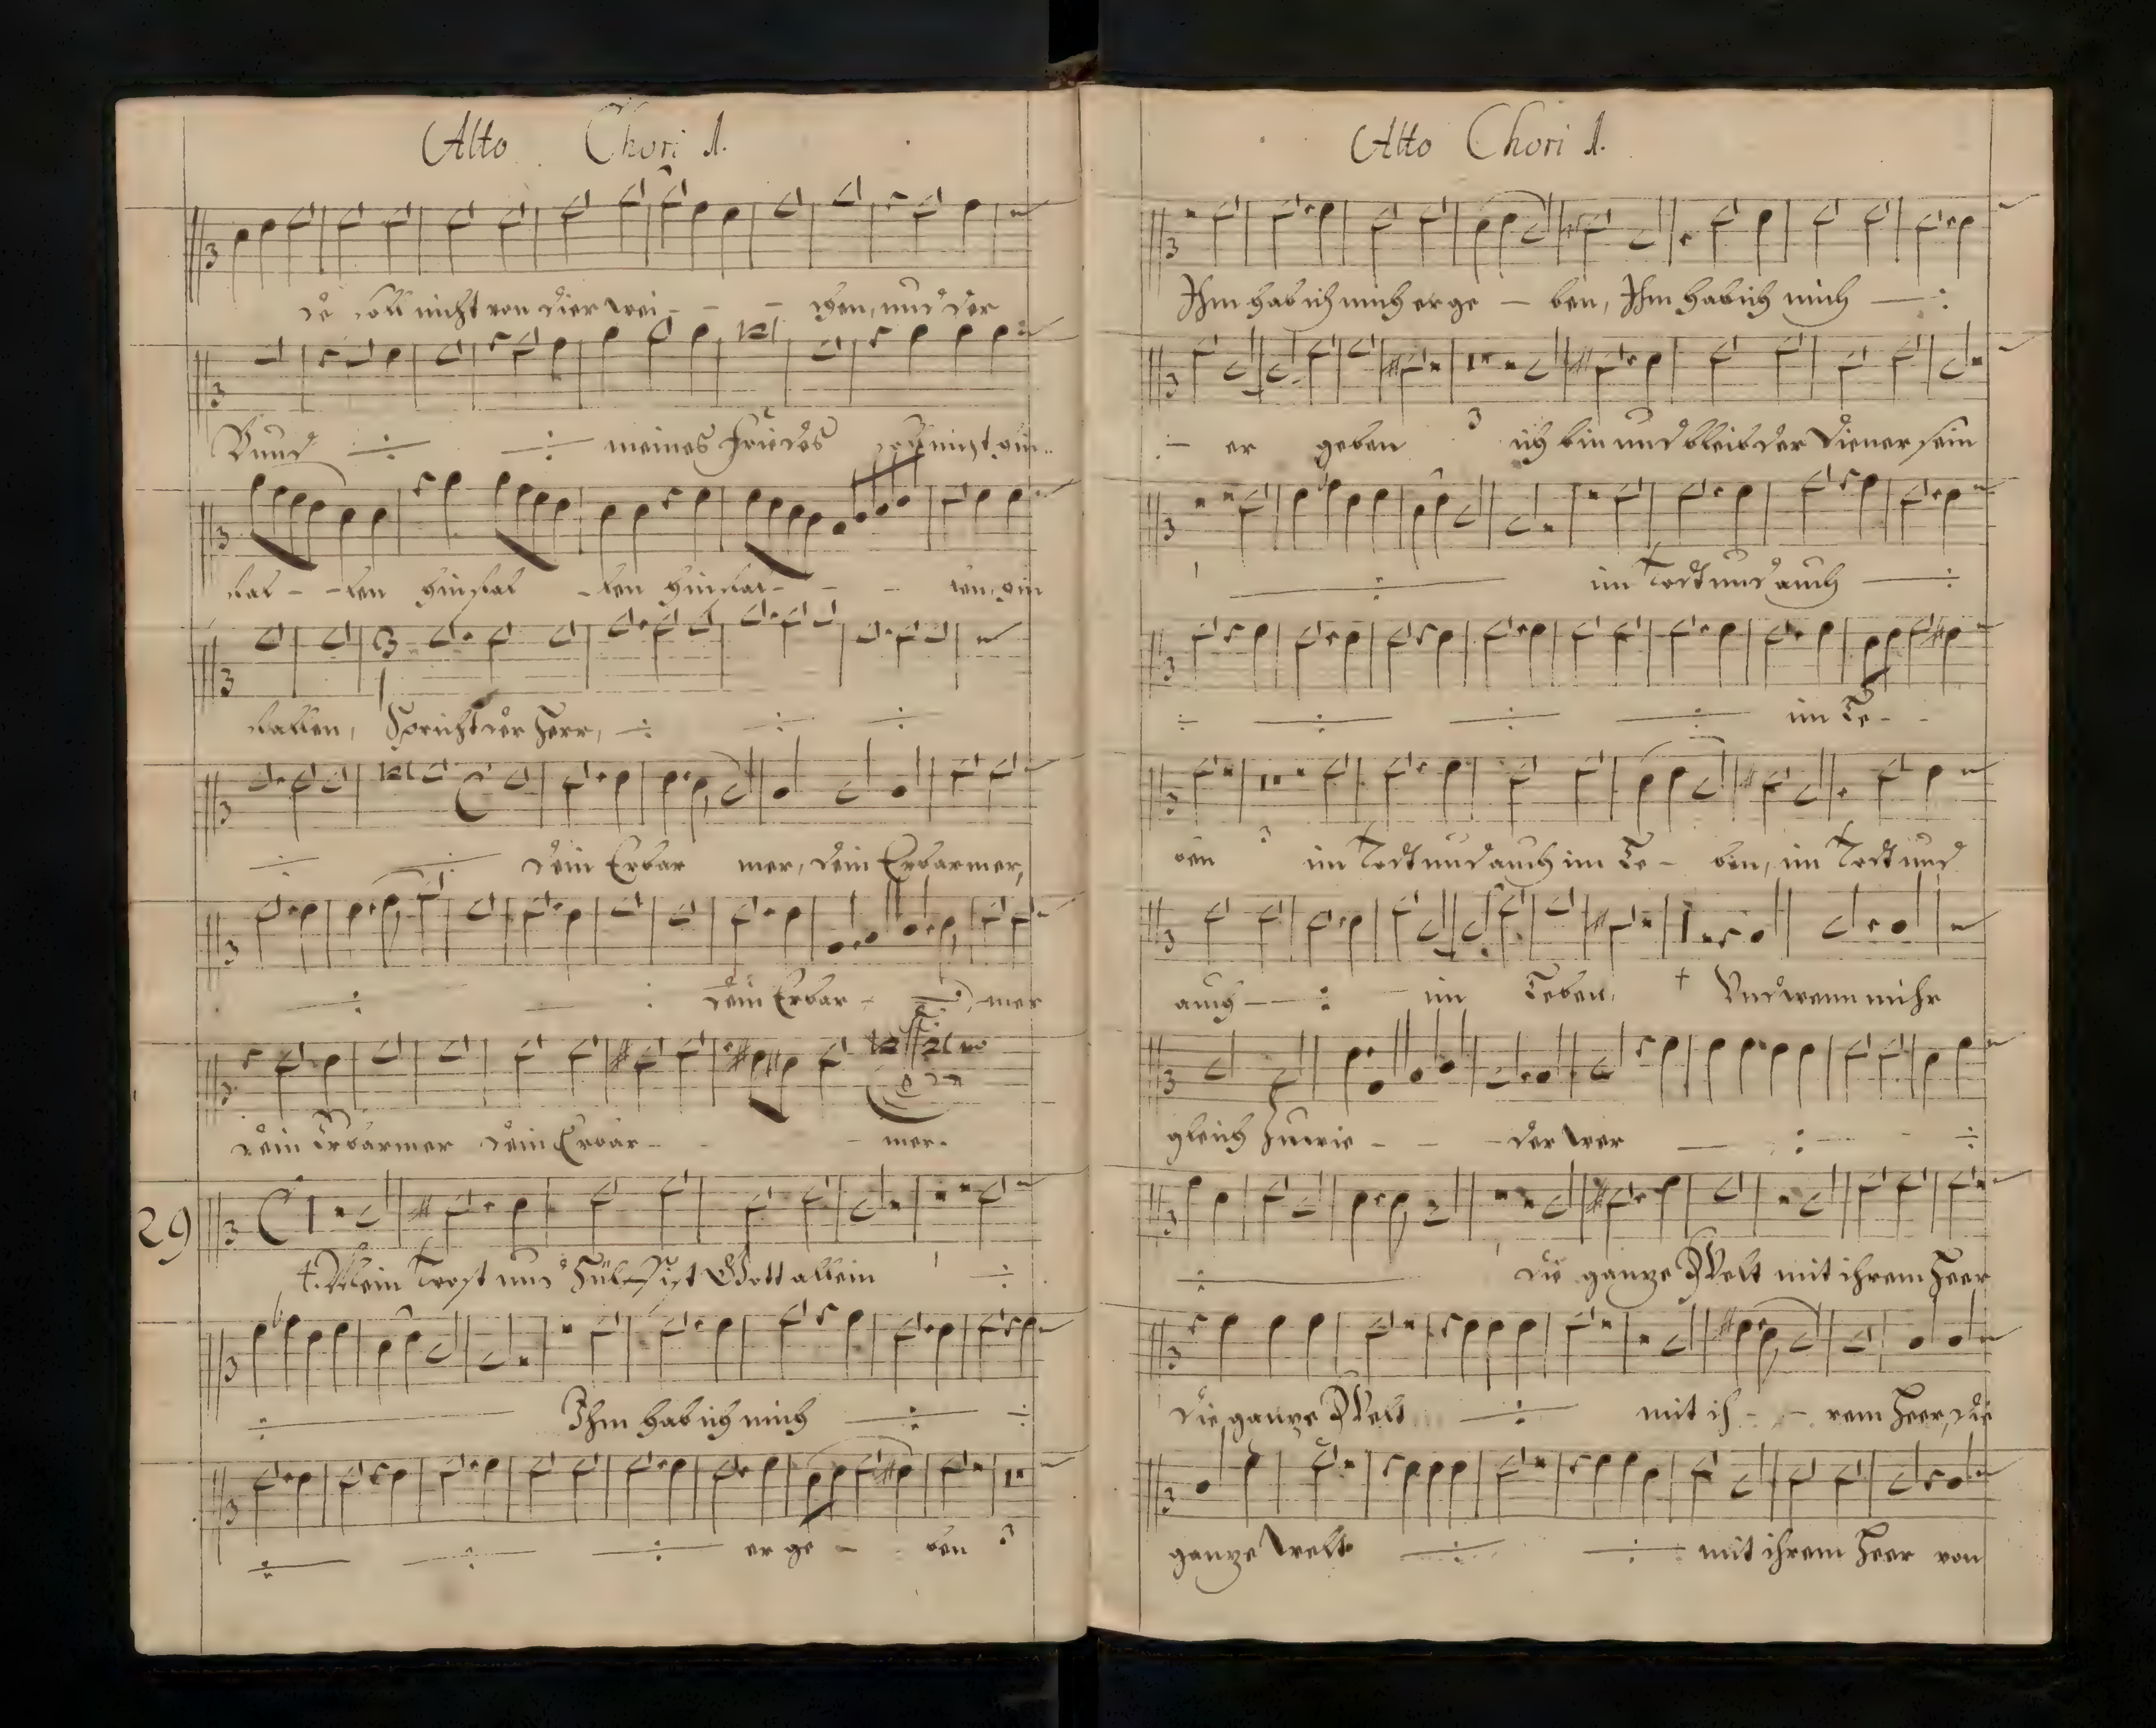 Alto Chori 1.
de soll nicht von dier wei - - chen, und der
Bund ÷ ÷ meines Friedes soll nicht hin-
fal - - len hinfal - len hinfal - - - len, hin
fallen, Spricht der Herr, ÷ ÷ ÷
÷ ÷ dein Erbar mer, dein Erbarmer,
÷ ÷ dein Erbar - ÷ mer
dein Erbarmer dein Erbar - - mer.
29
Mein Trost und Hülf ist Gott allein ÷
÷ Ihm hab ich mich ÷ ÷
÷ ÷ ÷ er ge - ben
Alto Chori 1.
Ihm hab ich mich er ge - ben, Ihm hab ich mich ÷
÷ er geben 3 ich bin und bleib der Diener sein
÷ im Todt und auch ÷
÷ ÷ ÷ ÷ im Le - -
ben 3 im Todt und auch im Le - ben, im Todt und
auch ÷ im Leben, Und wenn mihr
gleich zu wie - - - der wer ÷ ÷
÷ die ganze Welt mit ihrem Heer
die ganze Welt ÷ mit ih - - rem Heer, die
ganze Welt ÷ ÷ mit ihrem Heer von